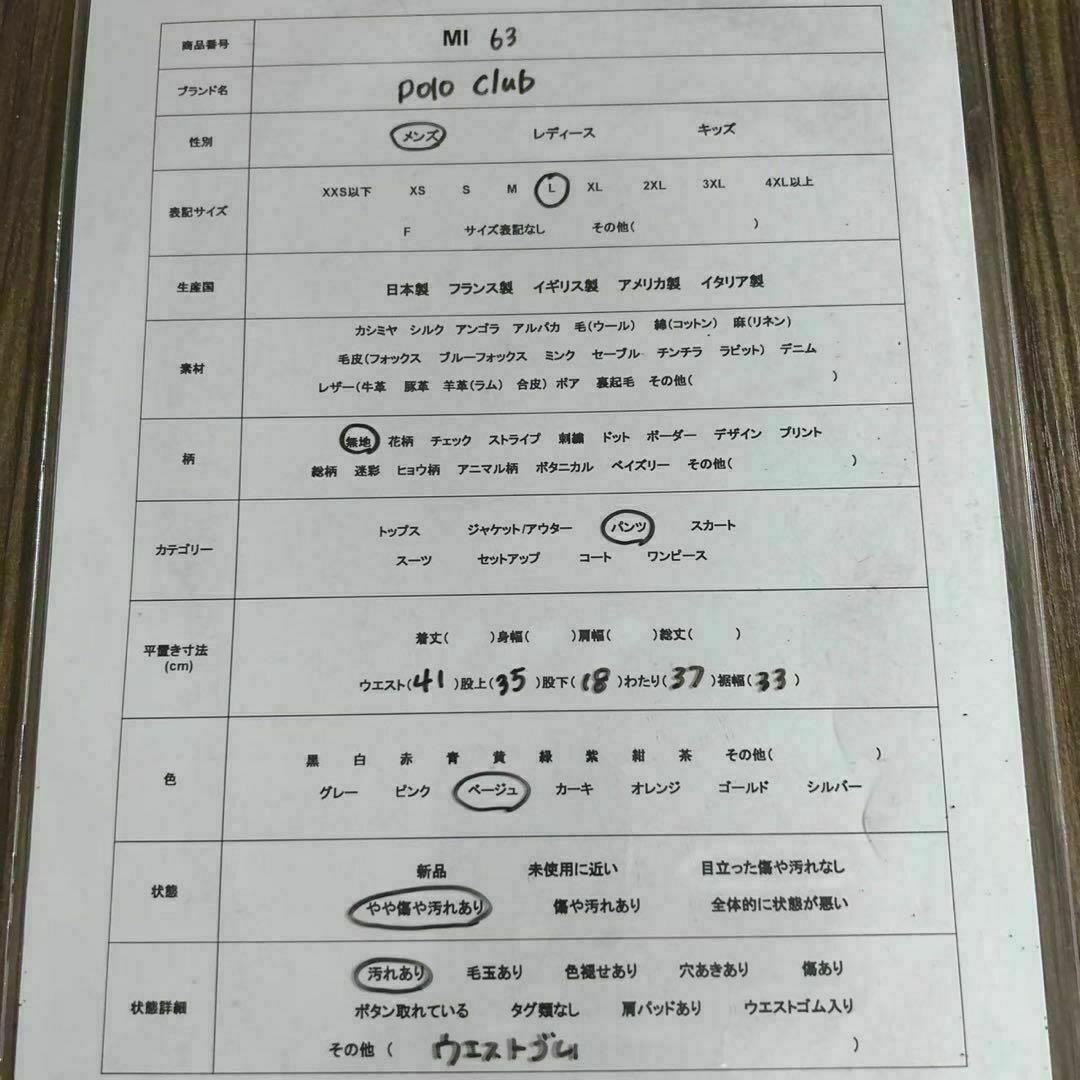 商品番号 MI 63
ブランド名 polo club
性別 メンズ レディース キッズ
XXS以下 XS S M L XL 2XL 3XL 4XL以上
表記サイズ
F サイズ表記なし その他( )
生産国 日本製 フランス製 イギリス製 アメリカ製 イタリア製
カシミヤ シルク アンゴラ アルパカ 毛(ウール) 綿(コットン) 麻(リネン)
素材 毛皮(フォックス ブルーフォックス ミンク セーブル チンチラ ラビット) デニム
レザー(牛革 豚革 羊革(ラム) 合皮) ボア 裏起毛 その他( )
柄 無地 花柄 チェック ストライプ 刺繍 ドット ボーダー デザイン プリント
総柄 迷彩 ヒョウ柄 アニマル柄 ボタニカル ペイズリー その他( )
カテゴリー トップス ジャケット/アウター パンツ スカート
スーツ セットアップ コート ワンピース
平置き寸法 着丈( )身幅( )肩幅( )総丈( )
(cm) ウエスト(41)股上(35)股下(18)わたり(37)裾幅(33)
色 黒 白 赤 青 黄 緑 紫 紺 茶 その他( )
グレー ピンク ベージュ カーキ オレンジ ゴールド シルバー
状態 新品 未使用に近い 目立った傷や汚れなし
やや傷や汚れあり 傷や汚れあり 全体的に状態が悪い
状態詳細 汚れあり 毛玉あり 色褪せあり 穴あきあり 傷あり
ボタン取れている タグ類なし 肩パッドあり ウエストゴム入り
その他 ( ウエストゴム )